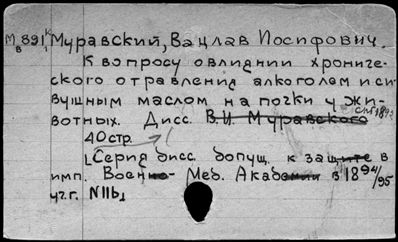 М 891 Муравский, Вацлав Иосифович.
в
К вопросу о влиянии хрониче-
ского отравления алкоголем и си-
вушным маслом на почки у жи-
вотных. Дисс. В.И. Муравского
40 стр.
[Серия дисс. допущ. к защите в
имп. Военно-Мед. Академии в 1894/95
уч. г. №16]